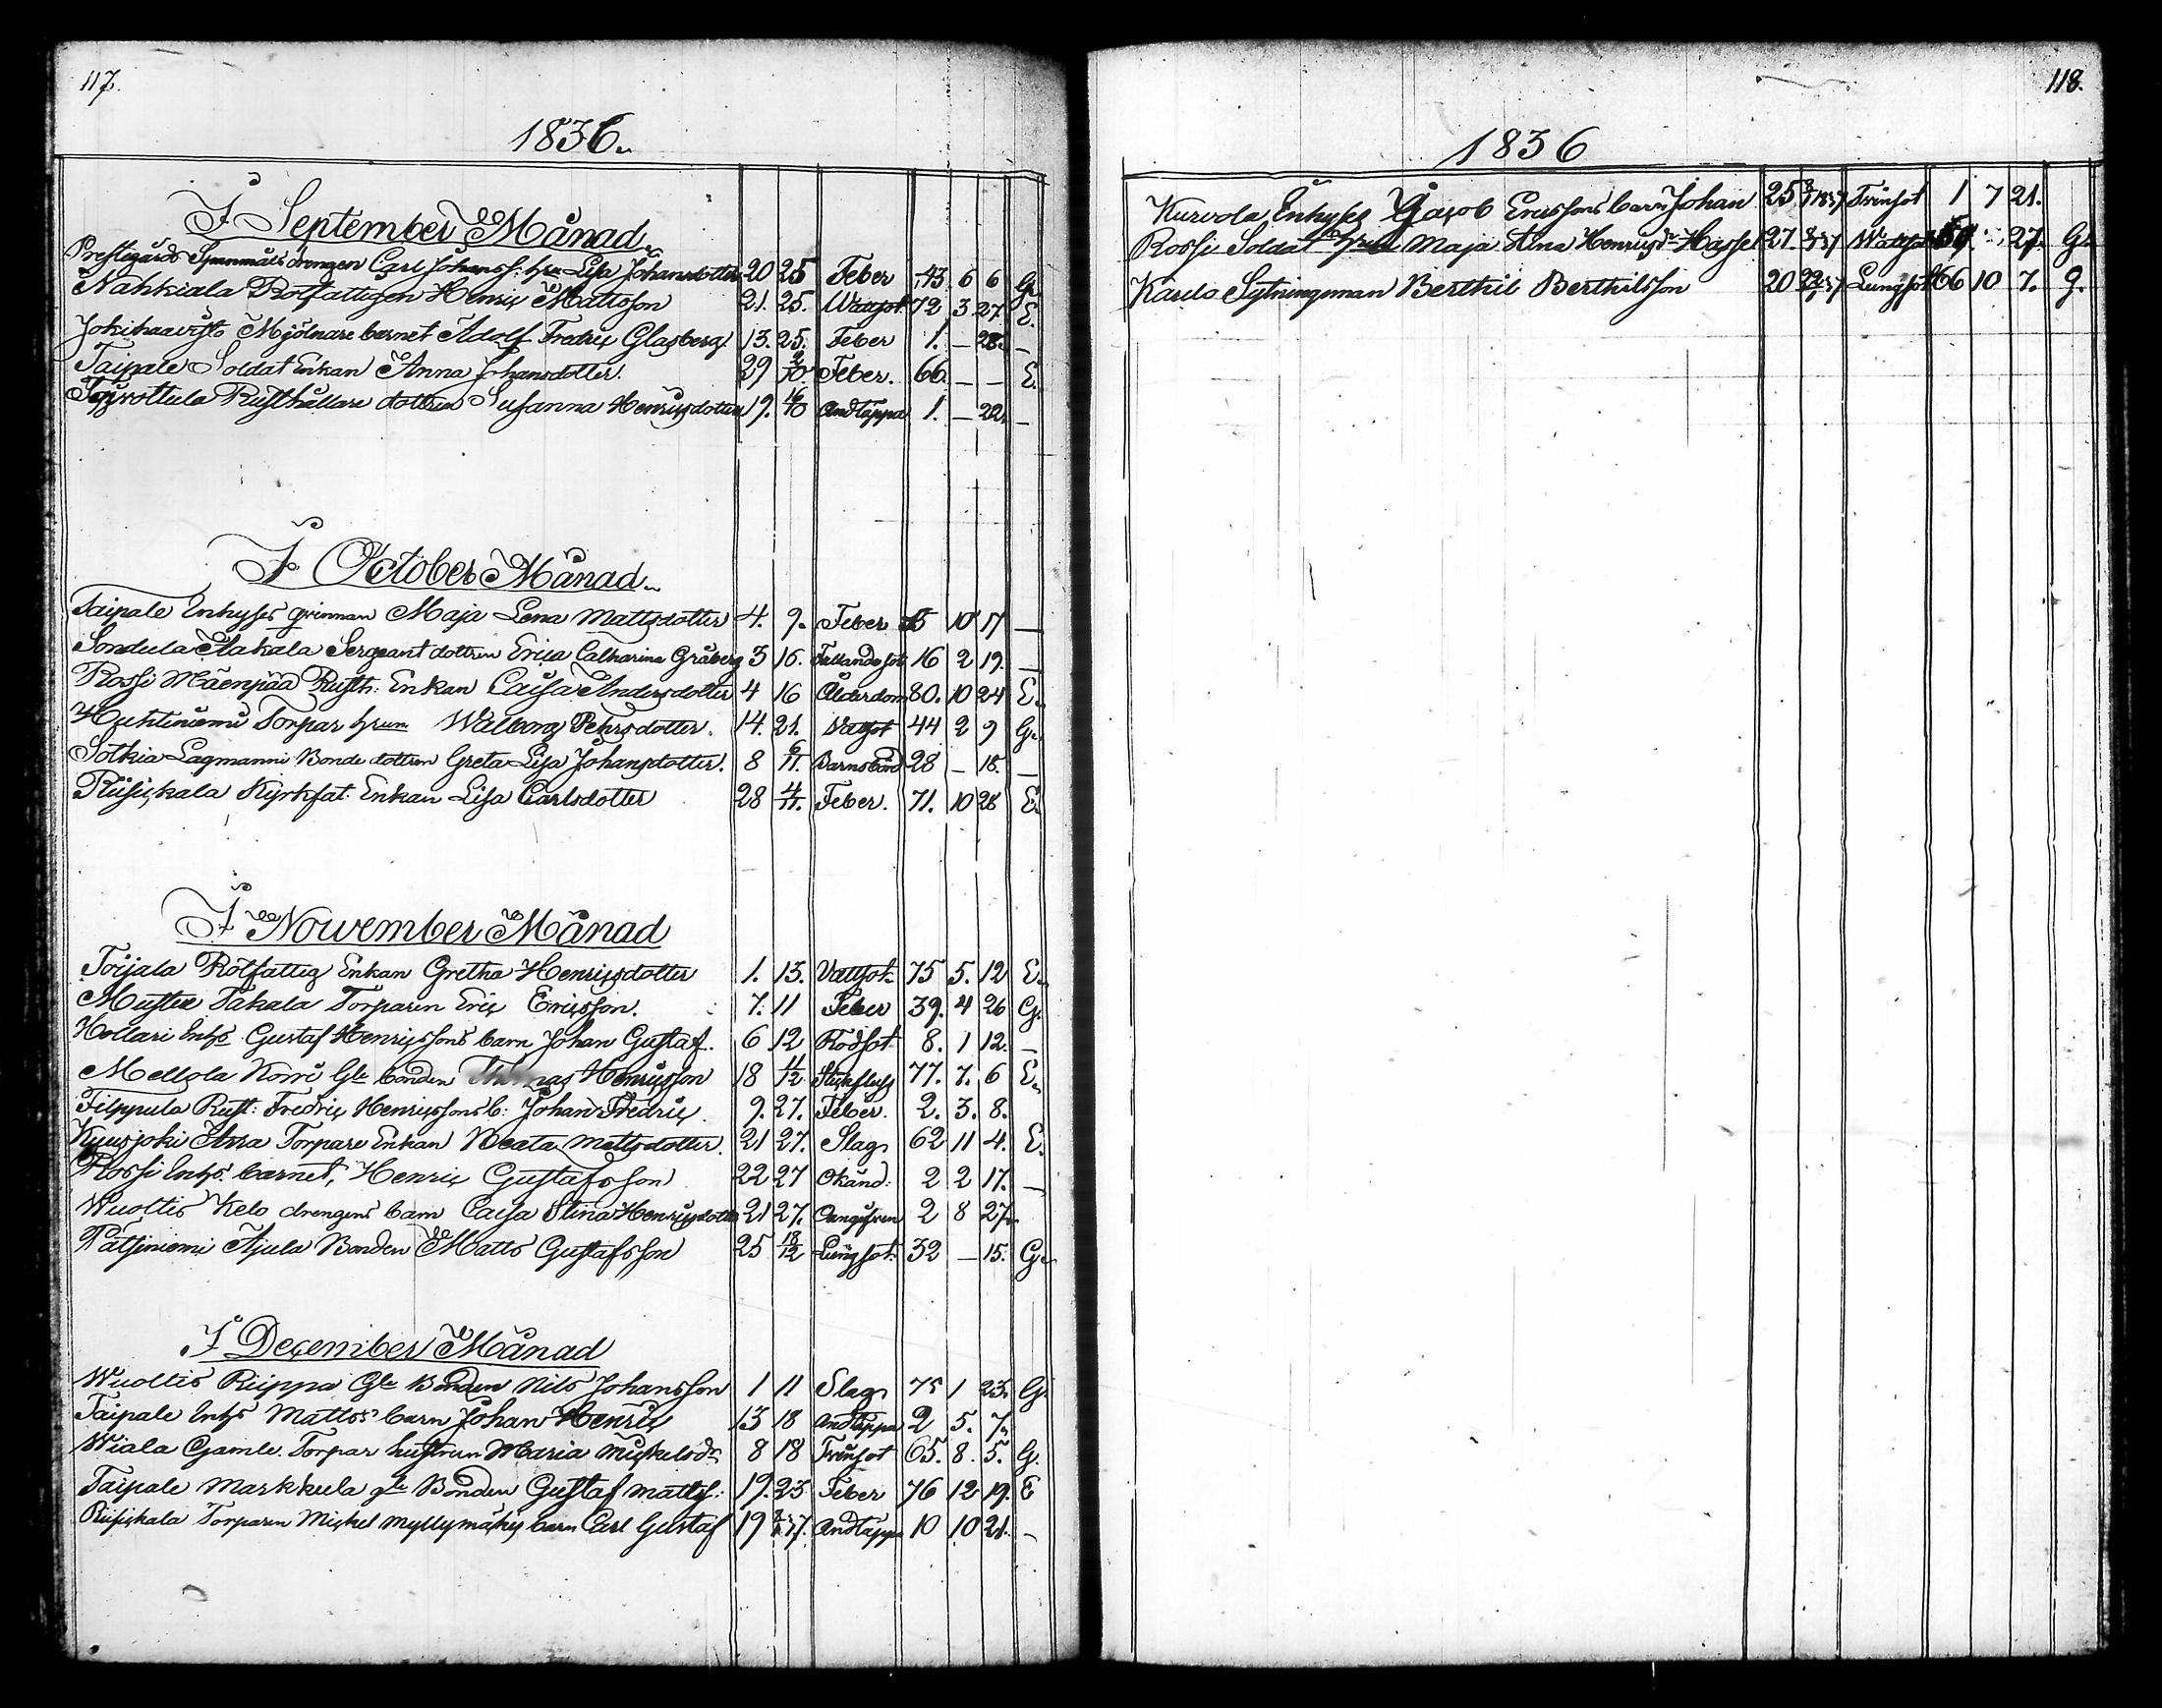 117.
1836.
I September Månad.
Prestgårds Spanmåls drengen Carl Johanss: hru Lisa Johansdotter 20 25 Feber 43 6 6 G.
Nahkiala Rotfattigen Henric Mattsson 21. 25. Wattsot 72 3 27 E.
Jokihaavisto Mjölnare barnet Adolf Fredric Glasberg 13. 25. Feber 1. — 28. —
Taipale Soldat Enkan Anna Johansdotter. 29 2/10 Feber. 66. — — E.
Rusthållare dottren Susanna Henricsdotter 19. 16/10 Andtäppa 1. — 22. —
I October Månad.
Taipale Enhyses qvinnan Maja Lena Mattsdotter 4. 9. Feber 10 17 —
Sondula Alakala Sergeant dottren Erica Catharina Gråberg 3 16. Fallandesot 16 2 19. —
Rossi Mäenpää Rusth: Enkan Caisa Andersdotter 4 16 Ålderdom 80. 10 24 E.
Huhtiniemi Torpar hrun Walborg Pehrsdotter. 14. 21. Vattsot 44 2 9 G.
Sotkia Lagmanni Bonde dottren Greta Lisa Johansdotter. 8 6/11. Barnsbörd 28 — 18. —
Riisickala Kyrkfat. Enkan Lisa Carlsdotter 28 4/11. Feber. 71. 10 28 E.
I November Månad
Toijala Rotfattig Enkan Gretha Henricsdotter 1. 13. Vattsot. 75 5. 12 E.
Mustia Takala Torparen Eric Ericsson. 7. 11 Feber 39. 4 26 G.
Hollari Enhs Gustaf Henricssons barn Johan Gustaf. 6 12 Rödsot 8. 1 12. —
Mellola Norri Gle bonden Thomas Henricsson 18 11/12 Stickfluss 77. 7. 6 E.
Filppula Rust: Fredric Henricssons b: Johan Fredric. 9. 27. Feber. 2. 3. 8.
Kyusjoki Torpare Enkan Beata Mattsdotter. 21 27. Slag 62 11 4. E.
Rossi Enhs. barnet, Henric Gustafsson 22 27 Okänd: 2 2 17. —
Wuoltis Kelo drengens barn Caisa Stina Henricsdotter 21 27. 2 8 27.
Pätsiniemi Ajula Bonden Matts Gustafsson 25 18/12 Lungsot. 32 — 15. G.
I December Månad
Wuoltis Riippa Gle Bonden Nils Johansson 1 11 Slag 75 1 23. G.
Taipale Enhs Mattss barn Johan Henric 13 18 Andtäppa 2 5. 7.
Wiala Gamle Torpar hustrun Maria Mickelsdr 8 18 Trånsot 65. 8. 5. G.
Taipale Markkula gle Bonden Gustaf Mattss: 19. 25 Feber 76 12 19. E
Riisickala Torparen Mickel Myllymäkis barn Carl Gustaf 19 37. Andtäppa 10 10 21. —
118.
1836
Kurvola Enhyses Jacob Ericssons barn Johan 25 1837 Trånsot 1 7 21.
Rossi Soldat hrun Maja Stina Henricsdr Hasse 27. 37 Wattsot 27. G.
Kardo Sytningsman Berthil Berthilsson 20 22/1 37 Lungsot 66 10 7. G.